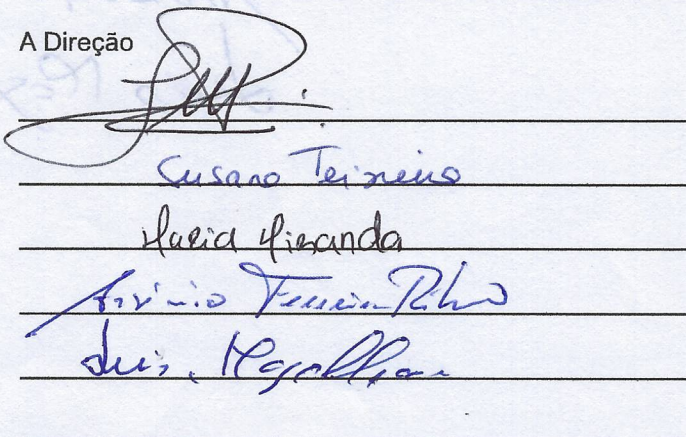 A Direção
Susana Teixeira
Maria Miranda
Ferreira
Luís Magalhães